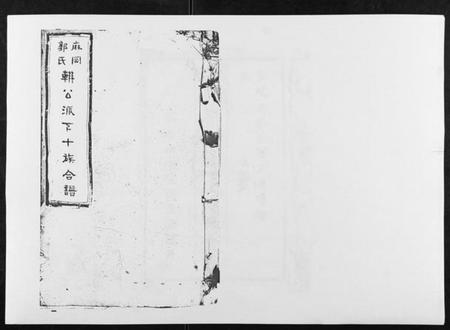 麻岡
郭氏
輯公派下十族合譜